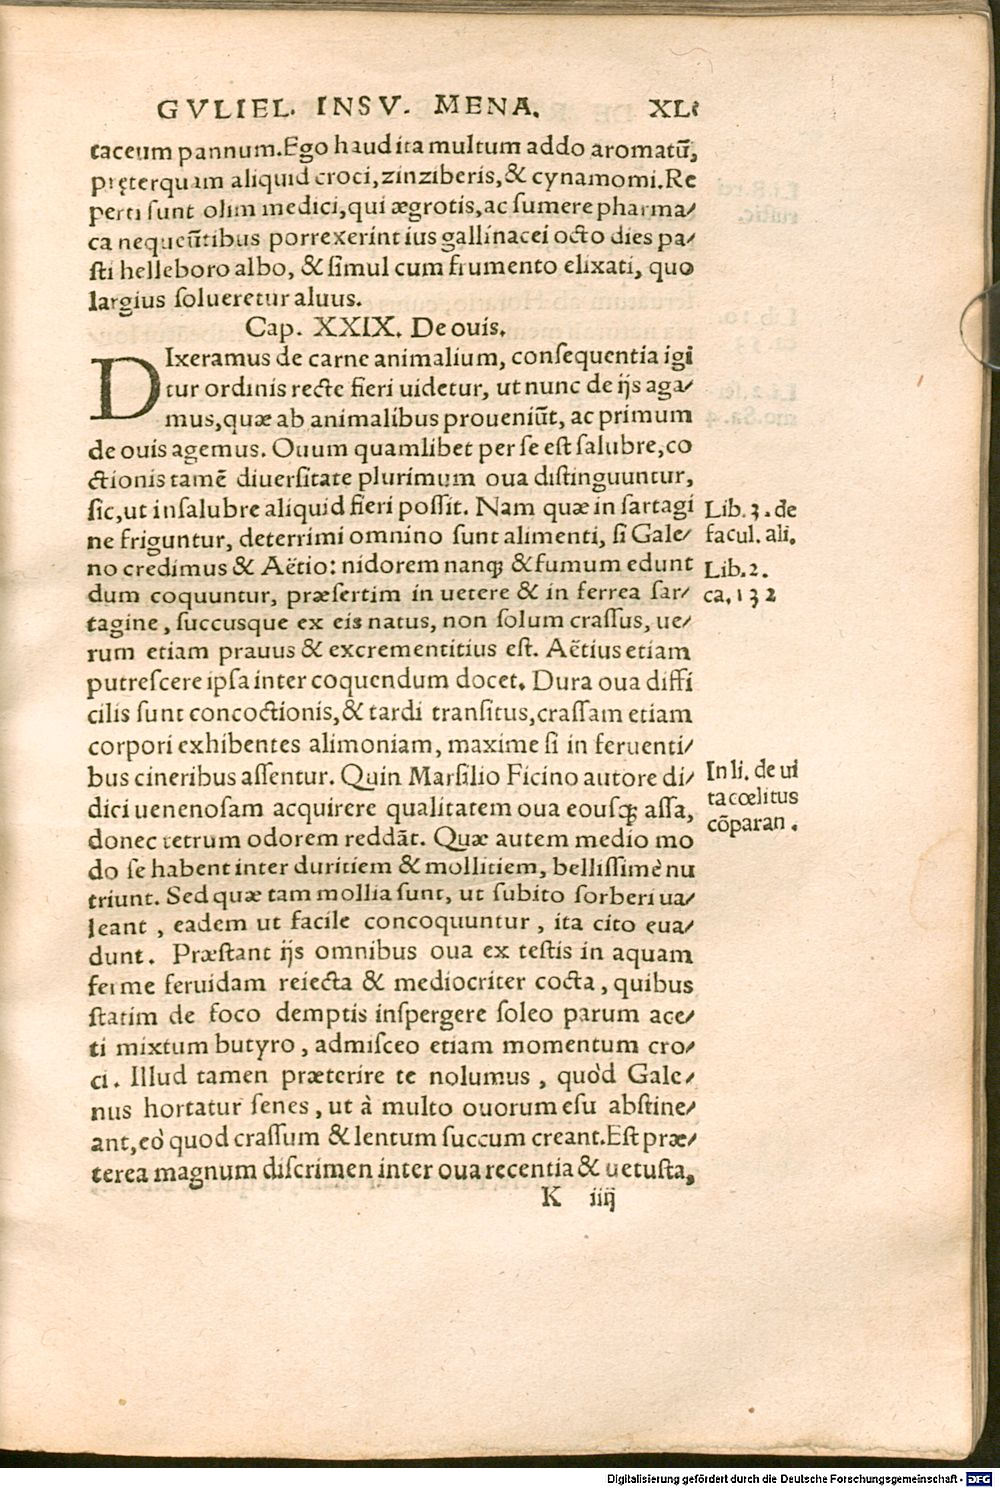 GVLIEL. INSV. MENA. XL
taceum pannum. Ego haud ita multum addo aromatū,
pręterquam aliquid croci, zinziberis, & cynamomi. Re
perti sunt olim medici, qui ægrotis, ac sumere pharma/
ca nequeūtibus porrexerint ius gallinacei octo dies pa/
sti helleboro albo, & simul cum frumento elixati, quo
largius solueretur aluus.
Cap. XXIX. De ouis.
DIxeramus de carne animalium, consequentia igi
tur ordinis recte fieri uidetur, ut nunc de ijs aga/
mus, quæ ab animalibus proueniūt, ac primum
de ouis agemus. Ouum quamlibet per se est salubre, co
ctionis tamē diuersitate plurimum oua distinguuntur,
sic, ut insalubre aliquid fieri possit. Nam quæ in sartagi
ne friguntur, deterrimi omnino sunt alimenti, si Gale/
no credimus & Aëtio: nidorem nanq; & fumum edunt
dum coquuntur, præsertim in uetere & in ferrea sar/
tagine, succusque ex eis natus, non solum crassus, ue/
rum etiam prauus & excrementitius est. Aëtius etiam
putrescere ipsa inter coquendum docet. Dura oua diffi
cilis sunt concoctionis, & tardi transitus, crassam etiam
corpori exhibentes alimoniam, maxime si in feruenti/
bus cineribus assentur. Quin Marsilio Ficino autore di/
dici uenenosam acquirere qualitatem oua eousq; assa,
donec tetrum odorem reddāt. Quæ autem medio mo
do se habent inter duritiem & mollitiem, bellissimè nu
triunt. Sed quæ tam mollia sunt, ut subito sorberi ua/
leant, eadem ut facile concoquuntur, ita cito eua/
dunt. Præstant ijs omnibus oua ex testis in aquam
ferme feruidam reiecta & mediocriter cocta, quibus
statim de foco demptis inspergere soleo parum ace/
ti mixtum butyro, admisceo etiam momentum cro/
ci. Illud tamen præterire te nolumus, quòd Gale/
nus hortatur senes, ut à multo ouorum esu abstine/
ant, eò quod crassum & lentum succum creant. Est præ/
terea magnum discrimen inter oua recentia & uetusta,
K iiij
Lib. 3. de
facul. ali.
Lib. 2.
ca. 132
In li. de ui
ta cœlitus
cōparan.
Digitalisierung gefördert durch die Deutsche Forschungsgemeinschaft - DFG